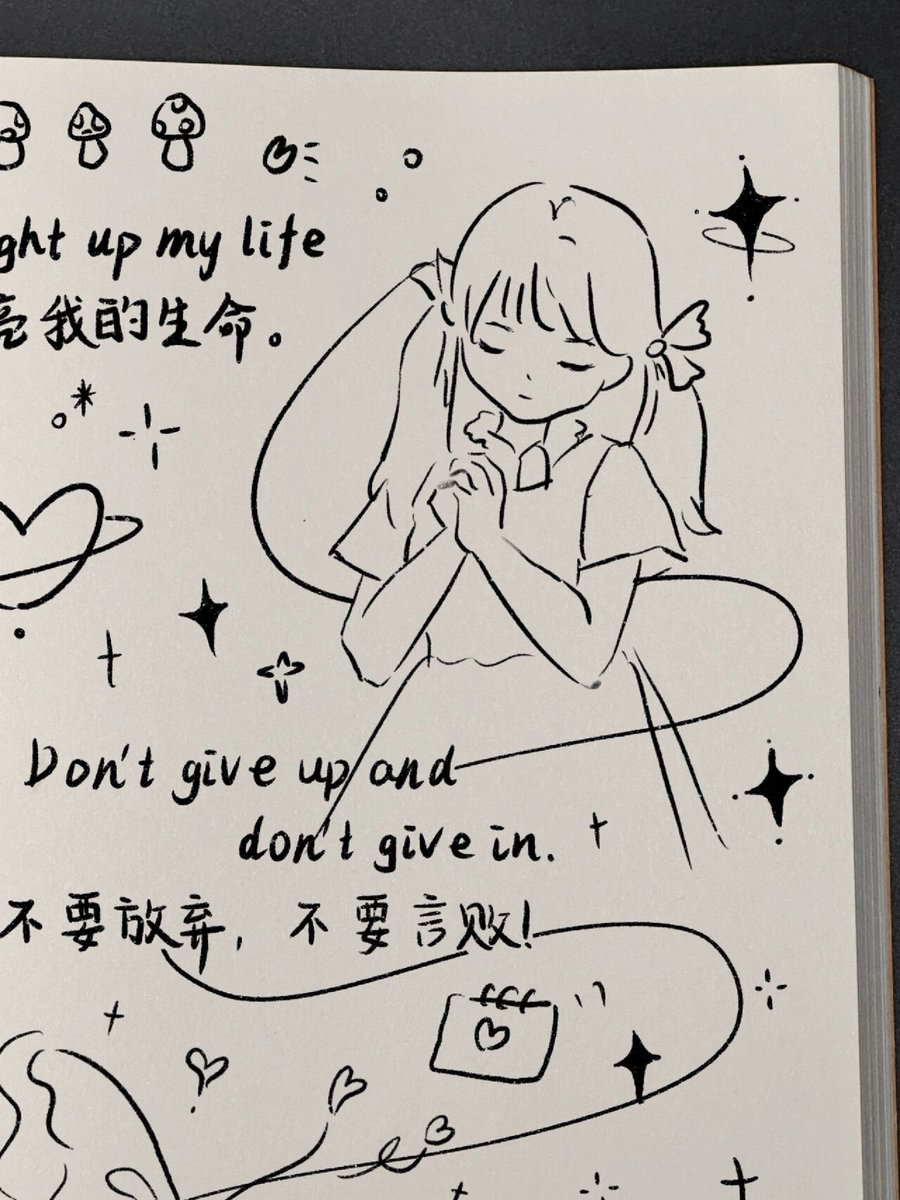 ght up my life
亮我的生命。
Don't give up and
don't give in.
不要放弃，不要言败！